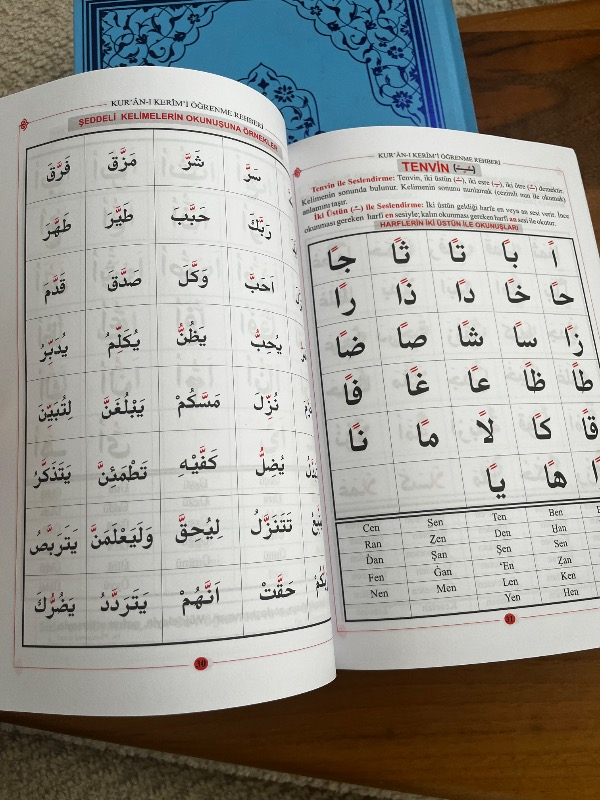 KUR'ÂN-I KERÎM'İ ÖĞRENME REHBERİ
ŞEDDELİ KELİMELERİN OKUNUŞUNA ÖRNEKLER
سَرَّ شَرَّ مَزَّقَ فَرَّقَ
رَبَّكَ حَبَّبَ طَيَّرَ طَهَّرَ
اَحَبَّ وَكَّلَ صَدَّقَ قَدَّمَ
يُحِبُّ يَظُنُّ يُكَلِّمُ يُدَبِّرُ
نُزِّلَ مَسَّكُمْ يَبْلُغَنَّ لِتُبَيِّنَ
يُضِلُّ كَفَّيْهِ تَطْمَئِنَّ يَتَذَكَّرُ
تَتَنَزَّلُ لِيُحِقَّ وَلَيَعْلَمَنَّ يَتَرَبَّصُ
حَقَّتْ اَنَّهُمْ يَتَرَدَّدُ يَضُرُّكَ
30
KUR'ÂN-I KERÎM'İ ÖĞRENME REHBERİ
TENVİN (ـًـٍـٌ)
Tenvin ile Seslendirme: Tenvin, iki üstün (ـً), iki esre (ـٍ), iki ötre (ـٌ) demektir.
Kelimenin sonunda bulunur. Kelimenin sonunu nunlamak (cezimli nun ile okumak)
anlamını taşır.
İki Üstün (ـً) ile Seslendirme: İki üstün geldiği harfe en veya an sesi verir. İnce
okunması gereken harfi en sesiyle; kalın okunması gereken harfi an sesi ile okutur.
HARFLERİN İKİ ÜSTÜN İLE OKUNUŞLARI
اً بًا تًا ثًا جًا
حًا خًا دًا ذًا رًا
زًا سًا شًا صًا ضًا
طًا ظًا عًا غًا فًا
قًا كًا لًا مًا نًا
هًا يًا
Cen Sen Ten Ben
Ran Zen Den Han
Ḋan Şan Şen Sen
Fen Ğan 'En Zan
Nen Men Len Ken
Yen Hen
31